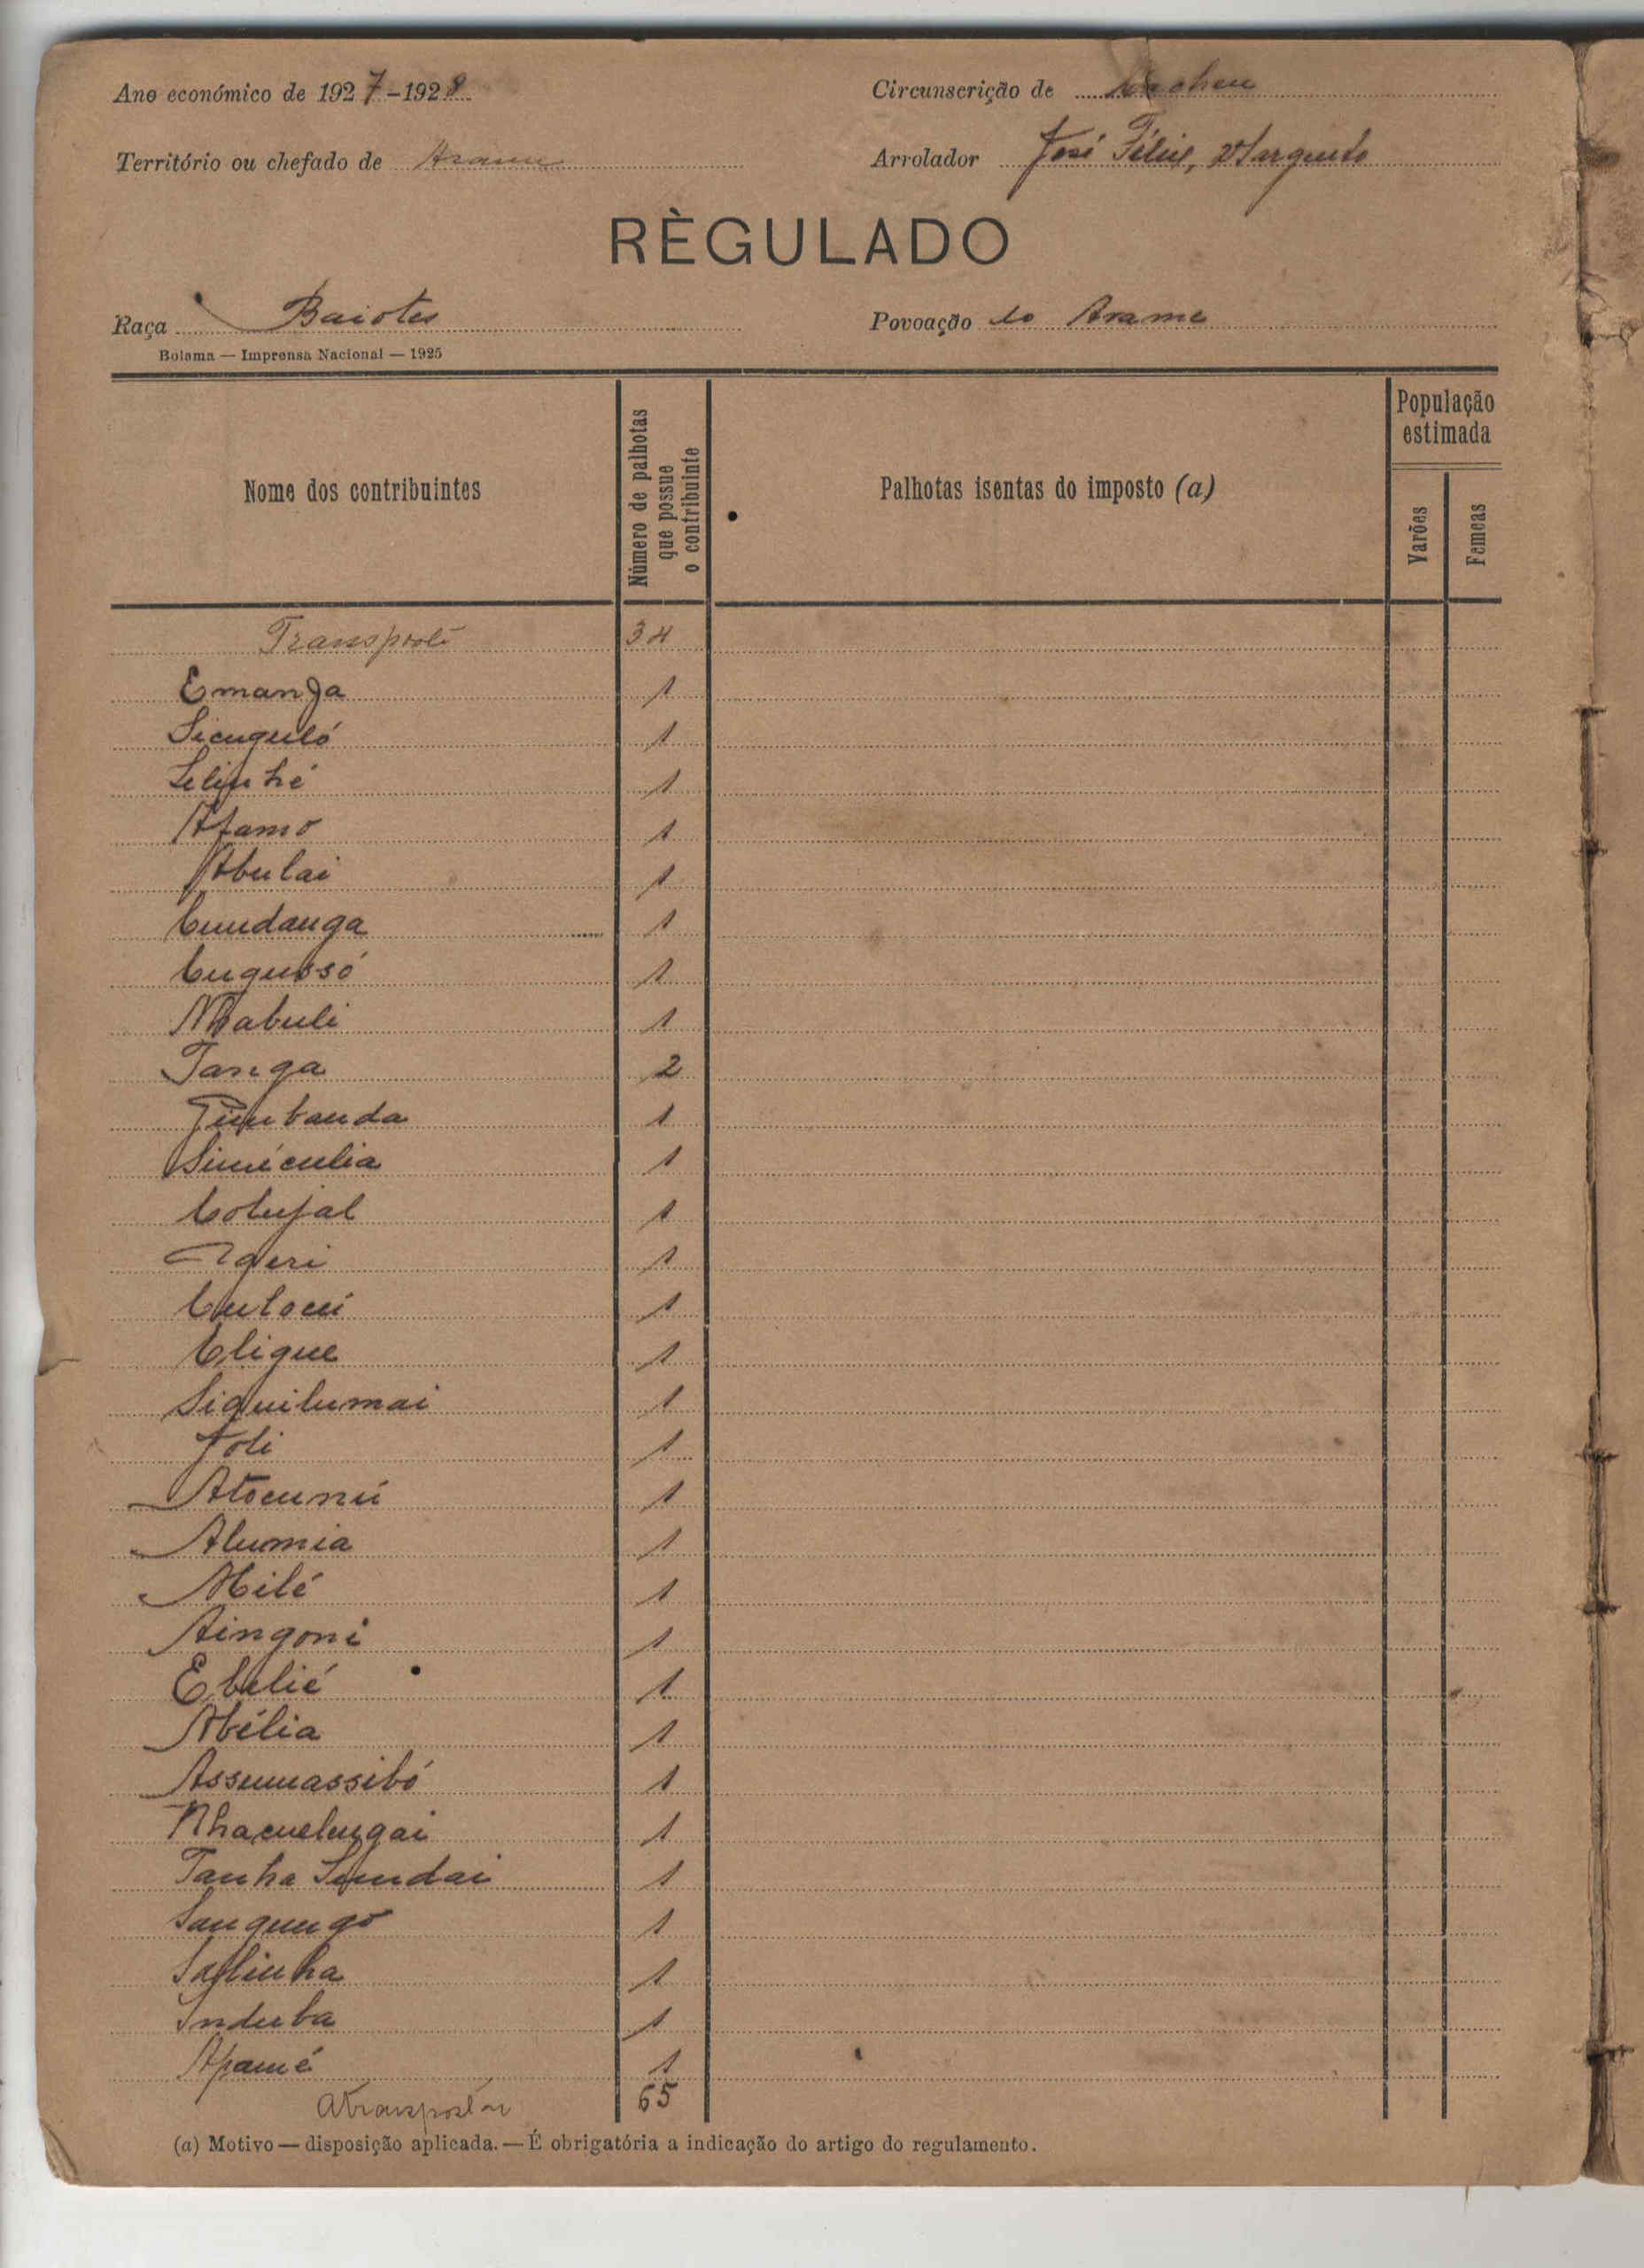 Ano económico de 1927-1928
Circunscrição de Cacheu
Território ou chefado de Arame
Arrolador José Felix, 2º Sargento
RÈGULADO
Raça Baiotes
Povoação de Arame
Bolama — Imprensa Nacional — 1925
Nome dos contribuintes
Número de palhotas que possue o contribuinte
Palhotas isentas do imposto (a)
População estimada
Varões
Femeas
Transporte 34
Emanga 1
Sicuguló 1
Selinhé 1
Afamo 1
Abulai 1
Cundanga 1
Cugussó 1
Nhabuli 1
Tanga 2
Gimbanda 1
Siniculia 1
Colujal 1
Ageri 1
1
Clique 1
Siquilumai 1
Joli 1
Atocunú 1
Alumia 1
Abilé 1
Aingoni 1
Ebelié 1
Abélia 1
Assumassibó 1
Nhacuelugai 1
Tanha Sundai 1
Sangungo 1
Saflinha 1
Induba 1
Apamé 1
A transportar 65
(a) Motivo — disposição aplicada. — É obrigatória a indicação do artigo do regulamento.